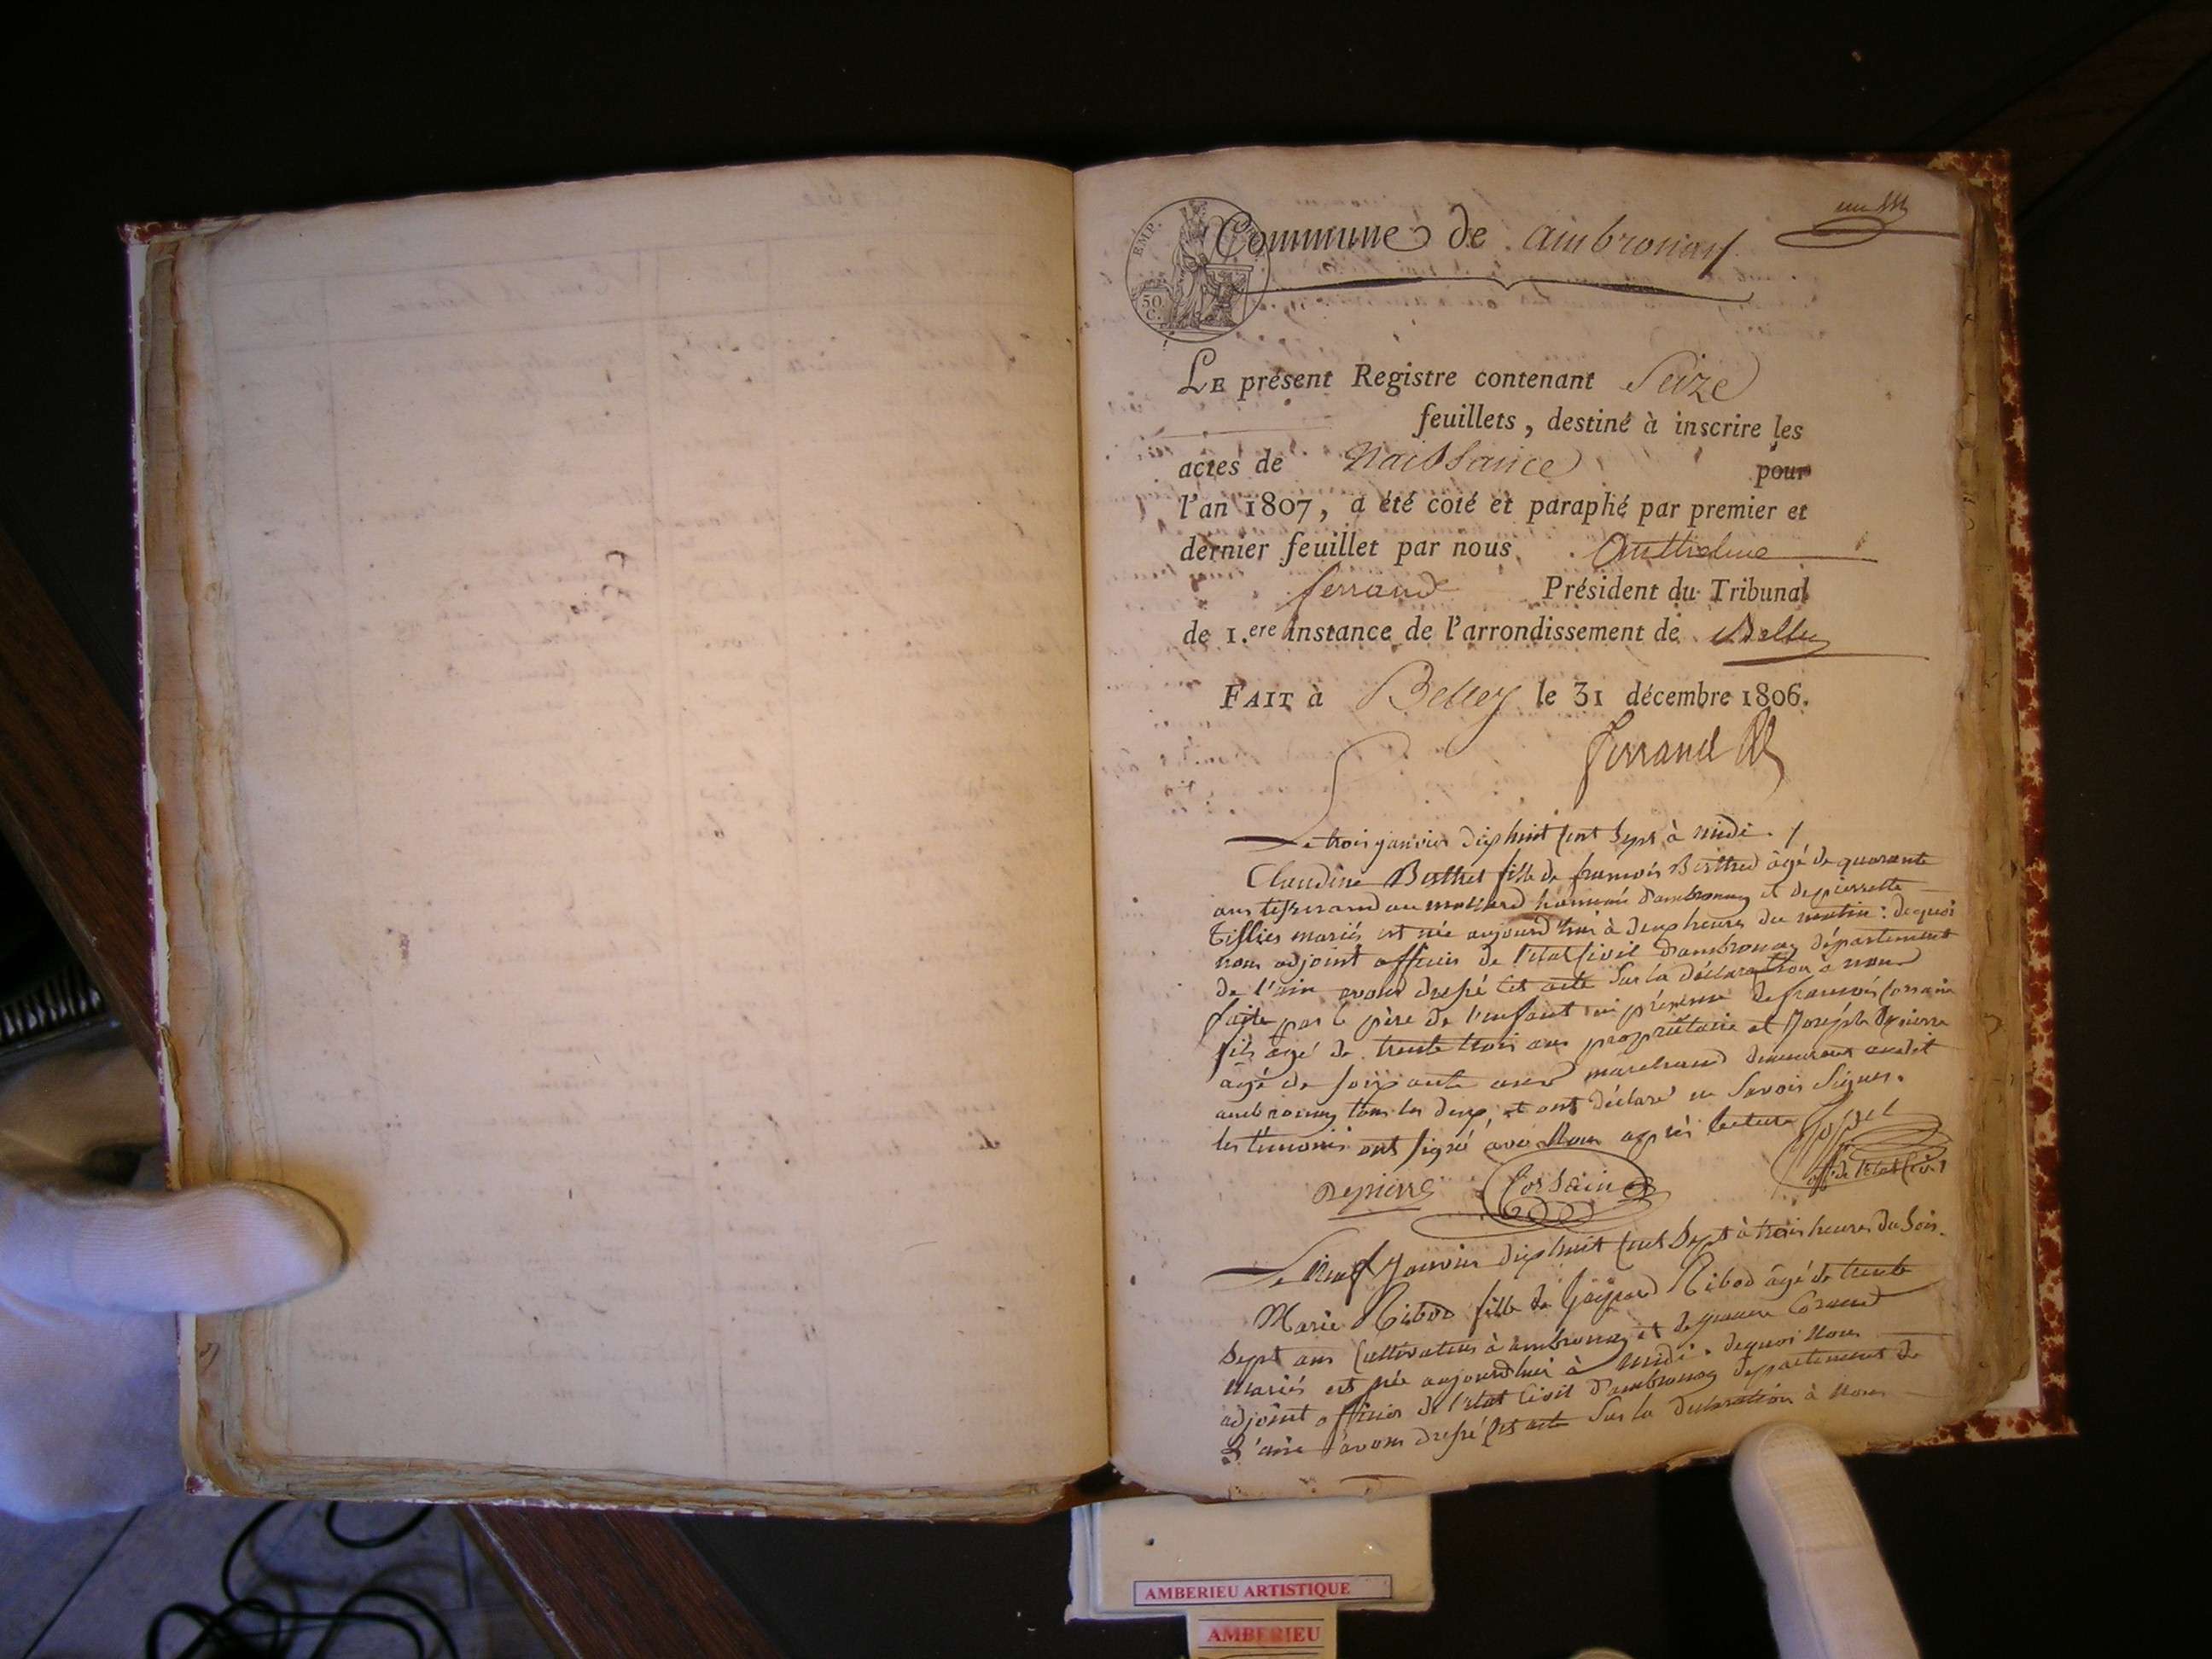 EMP.
50.
C.
Commune de ambronay
LE présent Registre contenant Seize
feuillets, destiné à inscrire les
actes de Naissance pour
l'an 1807, a été coté et paraphé par premier et
dernier feuillet par nous Anthelme
ferrand Président du Tribunal
de 1.ere Instance de l'arrondissement de Belley
FAIT à Belley le 31 décembre 1806.
ferrand
Le trois janvier dix huit cent Sept à midi.
Claudine Berthet fille de francois Berthet âgé de quarante
ans tisserand au hameau d'ambronay et de pierrette
mariés est née aujourd'hui à deux heures du matin : de quoi
nous adjoint officier de l'état civil d'ambronay département
de l'ain avons dressé cet acte Sur la déclaration à nous
faite par le père de l'enfant en présence de francois Corsain
fils âgé de trente trois ans propriétaire et Joseph Depierre
âgé de soixante ans marchand demeurant audit
ambronay tous les deux, et ont déclaré Savoir Signer.
les témoins ont signé avec Nous après lecture
off. de l'état Civil
Depierre Corsain
Le Neuf Janvier dix huit cent Sept à trois heures du Soir.
Marie Ribod fille de Gaspard Ribod âgé de trente
Sept ans Cultivateur à ambronay et de
mariés est née aujourd'hui à midi. de quoi Nous
adjoint officier de l'état Civil d'ambronay département de
L'ain avons dressé cet acte Sur la Declaration à Nous
AMBERIEU ARTISTIQUE
AMBERIEU